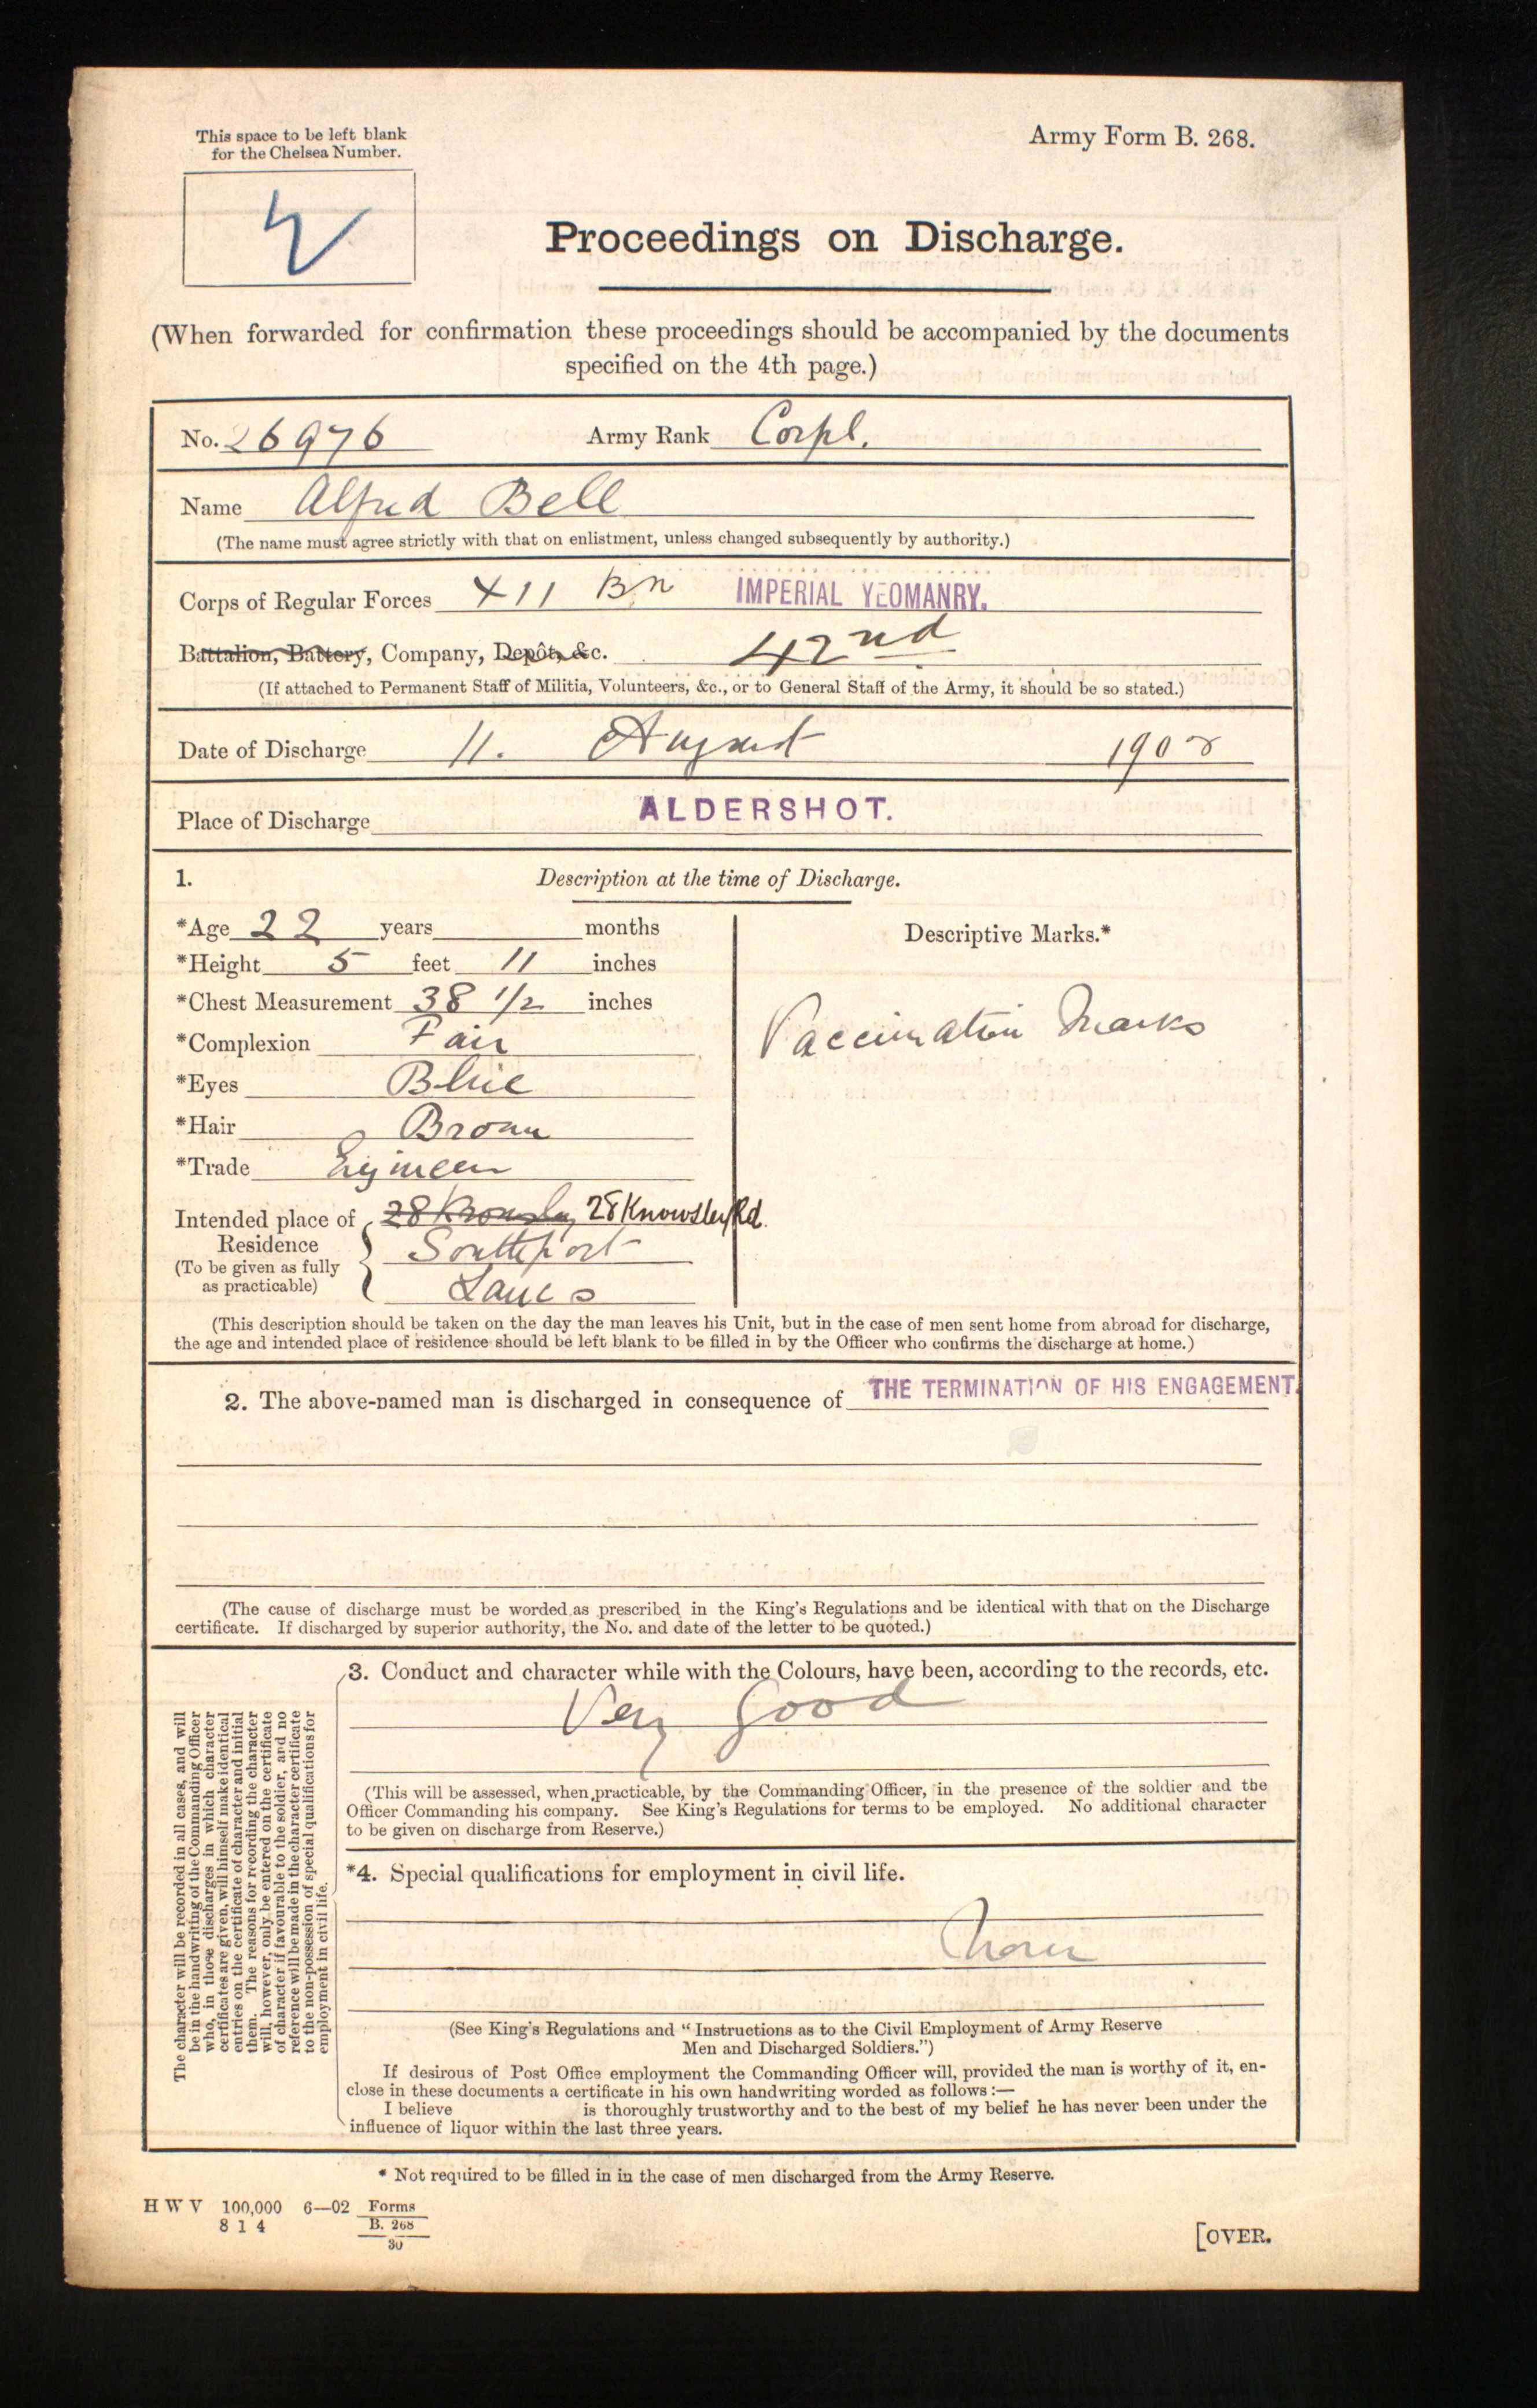 This space to be left blank
for the Chelsea Number.
Army Form B. 268.
Proceedings on Discharge.
(When forwarded for confirmation these proceedings should be accompanied by the documents
specified on the 4th page.)
No. 26976 Army Rank Corpl.
Name Alfred Bell
(The name must agree strictly with that on enlistment, unless changed subsequently by authority.)
Corps of Regular Forces XII Bn IMPERIAL YEOMANRY.
Battalion, Battery, Company, Depôt, &c. 42nd
(If attached to Permanent Staff of Militia, Volunteers, &c., or to General Staff of the Army, it should be so stated.)
Date of Discharge 11. August 190
Place of Discharge ALDERSHOT.
1. Description at the time of Discharge.
*Age 22 years months
Descriptive Marks.*
*Height 5 feet 11 inches
*Chest Measurement 38 1/2 inches
Vaccination Marks
*Complexion Fair
*Eyes Blue
*Hair Brown
*Trade Engineer
Intended place of 28 28 Knowsley Rd.
Residence Southport
(To be given as fully
as practicable) Lancs
(This description should be taken on the day the man leaves his Unit, but in the case of men sent home from abroad for discharge,
the age and intended place of residence should be left blank to be filled in by the Officer who confirms the discharge at home.)
2. The above-named man is discharged in consequence of THE TERMINATION OF HIS ENGAGEMENT.
(The cause of discharge must be worded as prescribed in the King's Regulations and be identical with that on the Discharge
certificate. If discharged by superior authority, the No. and date of the letter to be quoted.)
The character will be recorded in all cases, and will
be in the handwriting of the Commanding Officer
who, in those discharges in which character
certificates are given, will himself make identical
entries on the certificate of character and initial
them. The reasons for recording the character
will, however, only be entered on the certificate
of character if favourable to the soldier, and no
reference will be made in the character certificate
to the non-possession of special qualifications for
employment in civil life.
3. Conduct and character while with the Colours, have been, according to the records, etc.
Very Good
(This will be assessed, when practicable, by the Commanding Officer, in the presence of the soldier and the
Officer Commanding his company. See King's Regulations for terms to be employed. No additional character
to be given on discharge from Reserve.)
*4. Special qualifications for employment in civil life.
None
(See King's Regulations and "Instructions as to the Civil Employment of Army Reserve
Men and Discharged Soldiers.")
If desirous of Post Office employment the Commanding Officer will, provided the man is worthy of it, en-
close in these documents a certificate in his own handwriting worded as follows :—
I believe is thoroughly trustworthy and to the best of my belief he has never been under the
influence of liquor within the last three years.
* Not required to be filled in in the case of men discharged from the Army Reserve.
H W V 100,000 6—02 Forms
8 1 4 B. 268
30
[OVER.